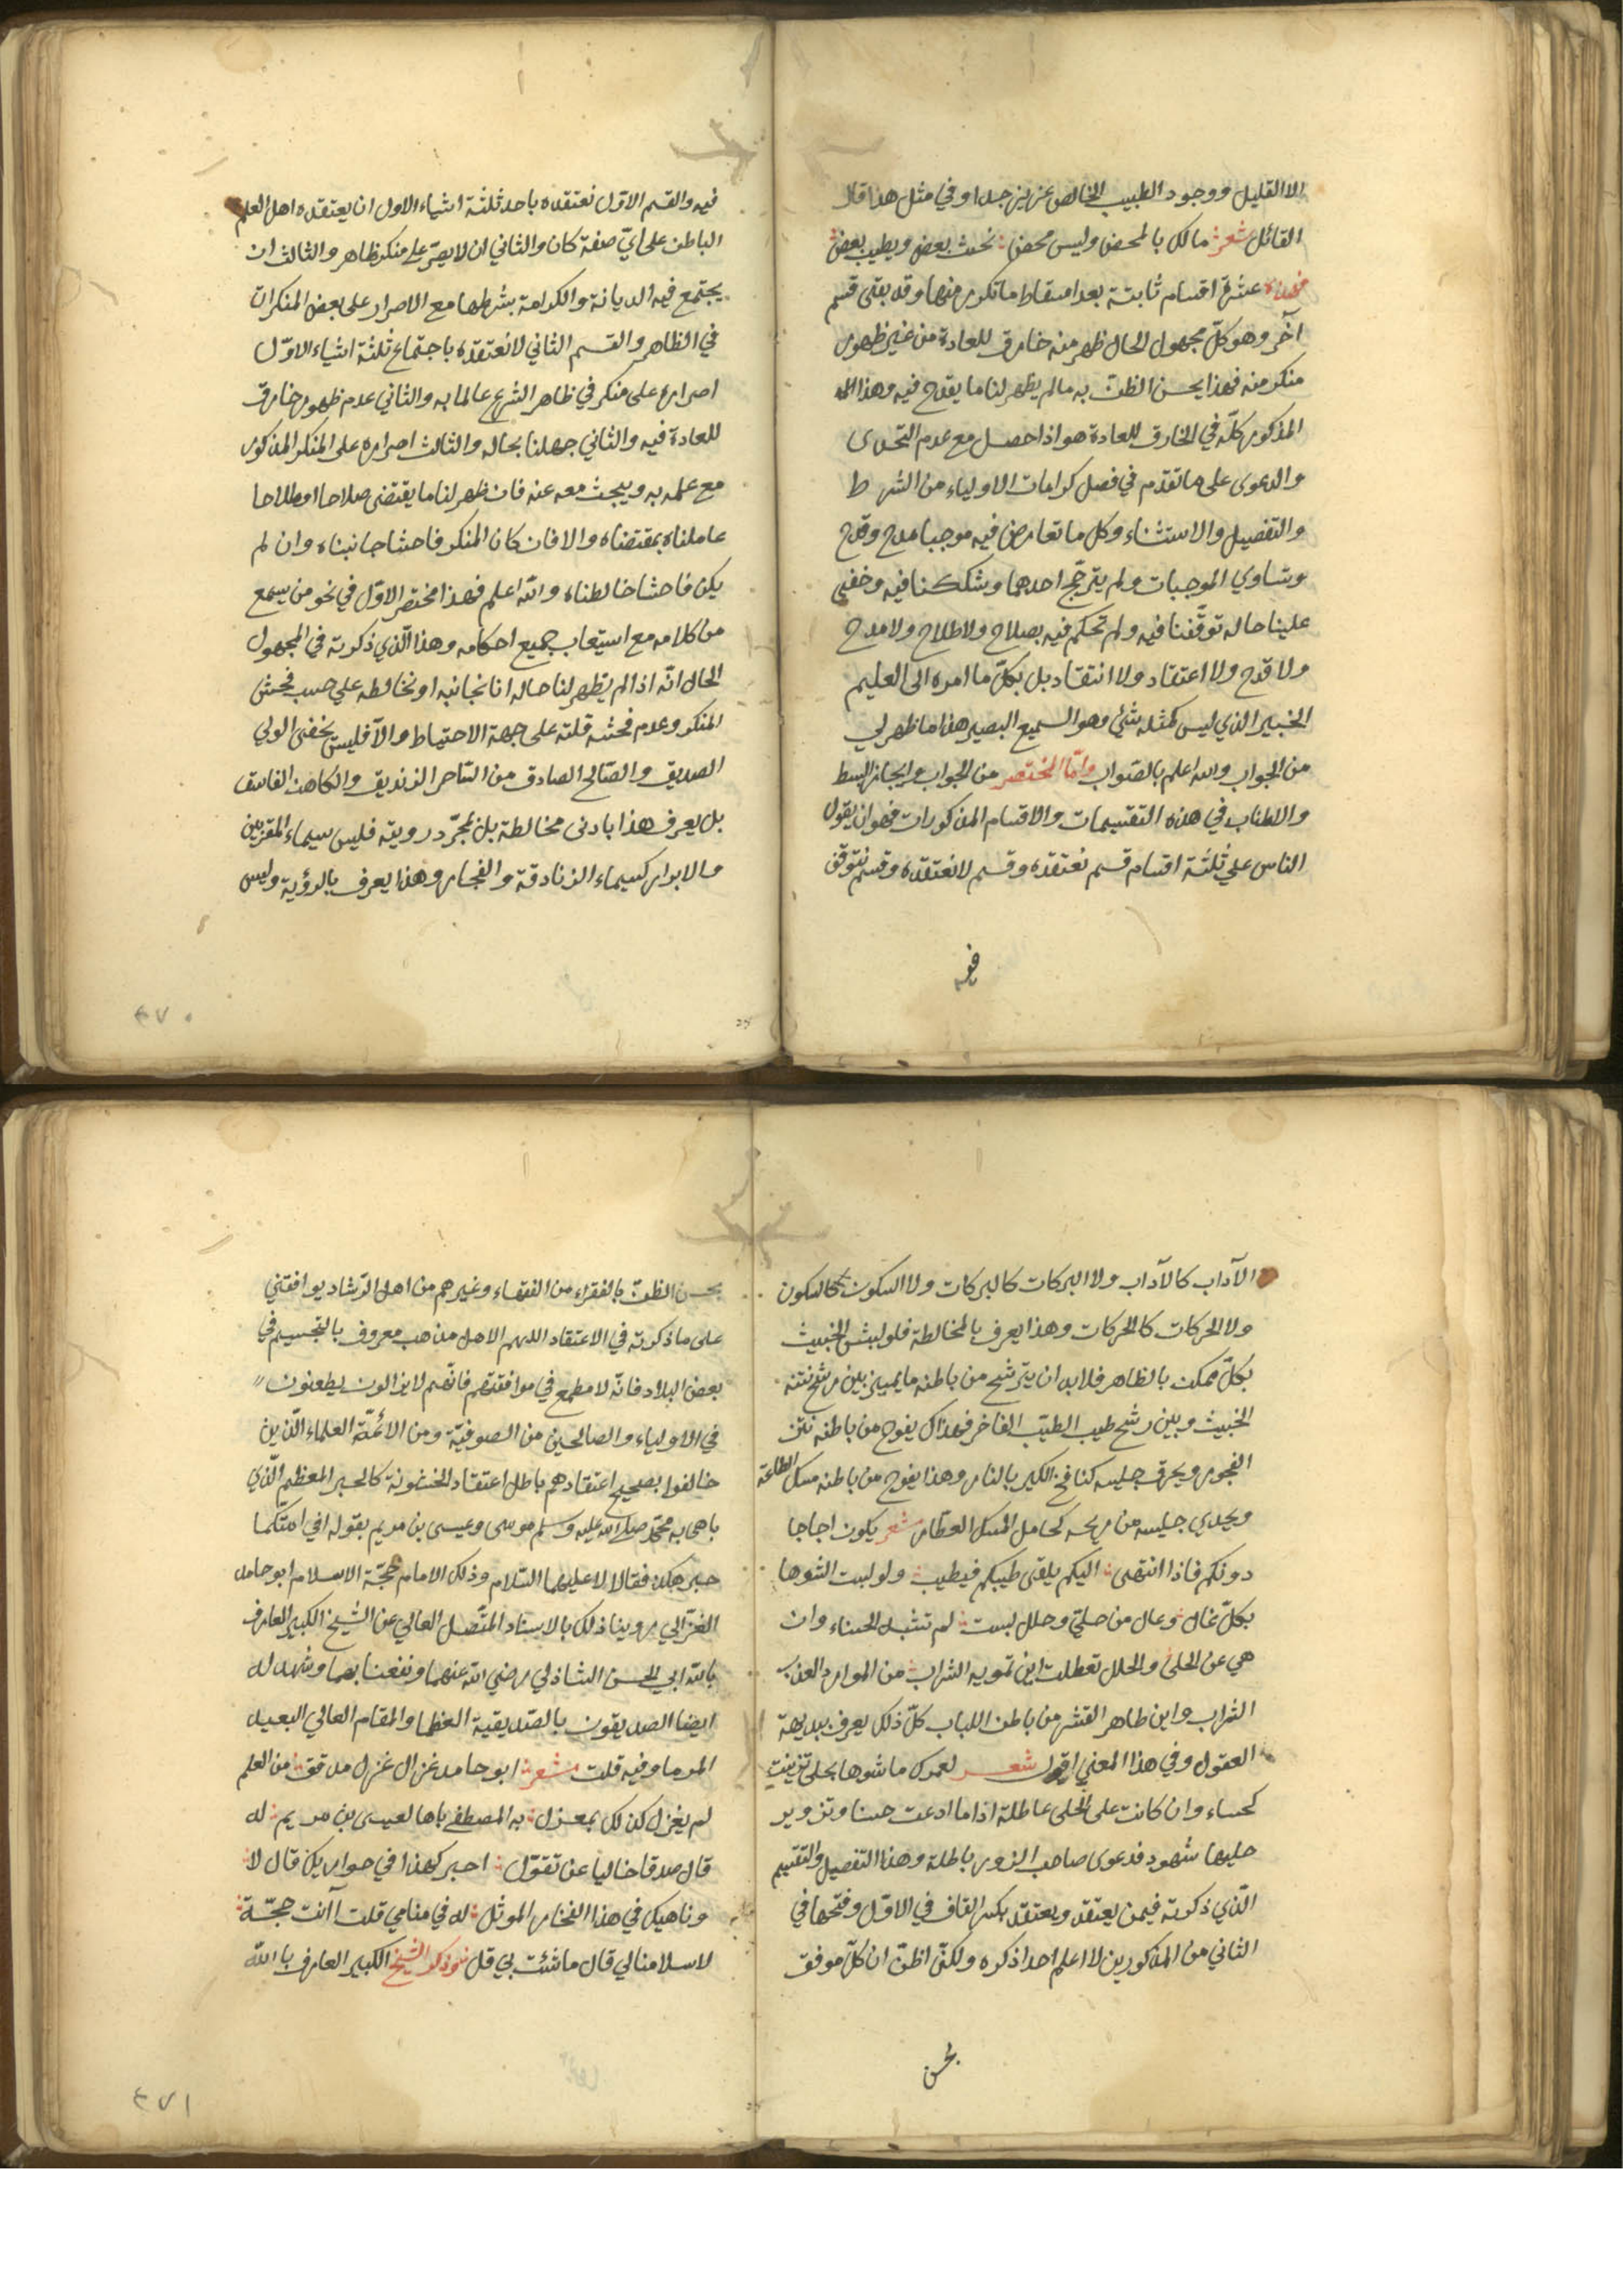 الا القليل ووجود الطبيب الخالص عزيز جدا وفي مثل هذا قال
القائل شعر مالك بالمحض وليس محض نخبث بعض ويطيب بعض
فهذه عشرة اقسام ثابتة بعد اسقاط ما تكرر منها وقد بقى قسم
آخر وهو كلّ مجهول الحال ظهر منه خارق للعادة من غير ظهور
منكر منه فهذا يحسن الظن به ما لم يظهر لنا ما يقدح فيه وهذا
المذكور كلّه في الخارق للعادة هو اذا حصل مع عدم التحدى
والدعوى على ما تقدّم في فصل كرامات الاولياء من الشرط
والتفصيل والاستثناء وكل ما تعارض فيه موجبا مدح وقدح
وتساوي الموجبات ولم يترجّح احدهما ويشككنا فيه وخفي
علينا حاله توقّفنا فيه ولم نحكم فيه بصلاح ولا طلاح ولا مدح
ولا قدح ولا اعتقاد ولا انتقاد بل نكلّ ما امره الى العليم
الخبير الذي ليس كمثله شئ وهو السميع البصير هذا ما ظهر لي
من الجواب والله اعلم بالصّواب وامّا المختصر من الجواب وايجاز البسط
والاطناب في هذه التقسيمات والاقسام المذكورات فهو ان يقول
الناس علي ثلثة اقسام قسم نعتقده وقسم لا نعتقده وقسم نتوقف
فيه
فيه والقسم الاوّل نعتقده باحد ثلثة اشياء الاول ان يعتقده اهل العلم
الباطن على ايّ صفة كان والثاني ان لا يصرّ على منكر ظاهر والثالث ان
يجتمع فيه الديانة والكرامة بشرطها مع الاصرار على بعض المنكرات
في الظاهر والقسم الثاني لا نعتقده باجتماع ثلثة اشياء الاوّل
اصراره على منكر في ظاهر الشرع عالما به والثاني عدم ظهور خارق
للعادة فيه والثاني جهلنا بحاله والثالث اصراره على المنكر المذكور
مع علمه به ويبحث معه عنه فان ظهر لنا ما يقتضى صلاحا او طلاحا
عاملناه بمقتضاه والا فان كان المنكر فاحشا جانبناه وان لم
يكن فاحشا خالطناه والله اعلم فهذا مختصر الاوّل في نحو من يسمع
من كلامه مع استيعاب جميع احكامه وهذا الّذي ذكرته في المجهول
الحال انّه اذا لم يظهر لنا حاله انا نجانبه او نخالطه على حسب فحش
المنكر وعدم فحشه قلته على جهة الاحتياط والّا فليس يخفى الولي
الصديق والصّالح الصادق من السّاحر الزنديق والكاهن الفاسق
بل يعرف هذا بادنى مخالطة بل بمجرّد رويته فليس سيماء المقربين
والابرار كسيماء الزنادقة والفجار وهذا يعرف بالرؤية وليس
٤٧٠
الآداب كالآداب ولا البركات كالبركات ولا السكون كالسكون
ولا الحركات كالحركات وهذا يعرف بالمخالطة فلو لبس الخبيث
بكلّ ممكن بالظاهر فلا بد ان يترشّح من باطنه ما يميز بين رشح نتنه
الخبيث وبين رشح طيب الطيّب الفاخر فهذاك يفوح من باطنه نتن
الفجور ويحرق جليسه كنافخ الكير بالنار وهذا يفوح من باطنه مسك الطاعة
ويحدي جليسه من ريحه كحامل المسك العطار شعر يكون اجاجا
دونكم فاذا انتهى اليكم يلقى طيبكم فيطيب ولو لبست الشوها
بكلّ غال وعال من حليّ وحلل لبست لم تشبه الحسناء وان
هي عن الحلى والحلل تعطلت اين تمويه الشراب من الموارد العذب
الشراب واين ظاهر القشر من باطن اللباب كلّ ذلك يعرف ببديهة
العقول وفي هذا المعنى اقول شعر لعمرك ما شوها بحلى تزينت
كحساء وان كانت على الحلى عاطلة اذا ما ادعت حسنا وتزوير
حليها شهود فدعوى صاحب الزور باطلة وهذا التفصيل والتقسيم
الّذي ذكرته فيمن يعتقد ويعتقد بكسر القاف في الاوّل وفتحها في
الثاني من المذكورين لا اعلم احدا ذكره ولكنّي اظنّ ان كلّ موفق
بحسن
بحسن الظن بالفقراء من الفقهاء وغيرهم من اهل الرّشاد يوافقني
على ما ذكرته في الاعتقاد اللهم الا اهل مذهب معروف بالتجسيم في
بعض البلاد فانّه لا مطمع في موافقتهم فانّهم لا يزالون يطعنون
في الاولياء والصالحين من الصوفيّة ومن الائمّة العلماء الّذين
خالفوا بصحيح اعتقادهم باطل اعتقاد الخشونة كالحبر المعظم الّذي
باهى به محمّد صلى الله عليه وسلم موسى وعيسى بن مريم بقوله افي امتكما
حبر هكذا فقالا لا عليهما السّلام وذلك الامام حجّة الاسلام ابو حامد
الغزّالي روينا ذلك بالاسناد المتّصل العالي عن الشيخ الكبير العارف
بالله ابي الحسن الشاذلي رضي الله عنهما ونفعنا بهما وشهد له
ايضا الصديقون بالصّديقية العظما والمقام العالي البعيد
المرما وفيه قلت شعر ابو حامد غزال غزل مدقق من العلم
لم يغزل كذلك بمعزل به المصطفى باها لعيسى بن مريم له
قال صدقا خاليا عن تقوّل احبر كهذا في حواريك قال لا
وناهيك في هذا الفخار الموثل له في منامي قلت أأنت حجّة
لاسلامنا لي قال ما شئت بي قل نوذكر الشيخ الكبير العارف بالله
٤٧١